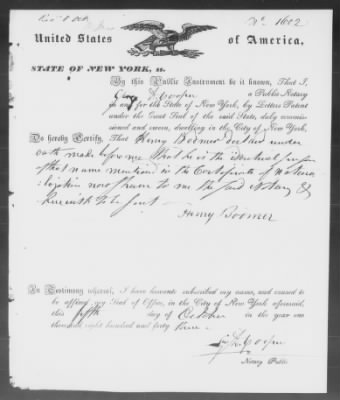 Nº 1602
United States of America,
STATE OF NEW YORK, ss.
By this Public Instrument be it known, That I,
Cooper a Public Notary
in and for the State of New York, by Letters Patent
under the Great Seal of the said State, duly commis-
sioned and sworn, dwelling in the City of New York,
Do hereby Certify, That Henry Boomer declared under
oath made before me that he is the identical person
of that name mentioned in the Certificate of Natura-
lization now shown to me the said Notary &
herewith to be sent
Henry Boomer
In Testimony whereof, I have hereunto subscribed my name, and caused to
be affixed my Seal of Office, in the City of New York aforesaid,
this fifth day of October in the year one
thousand eight hundred and forty three
Cooper
Notary Public